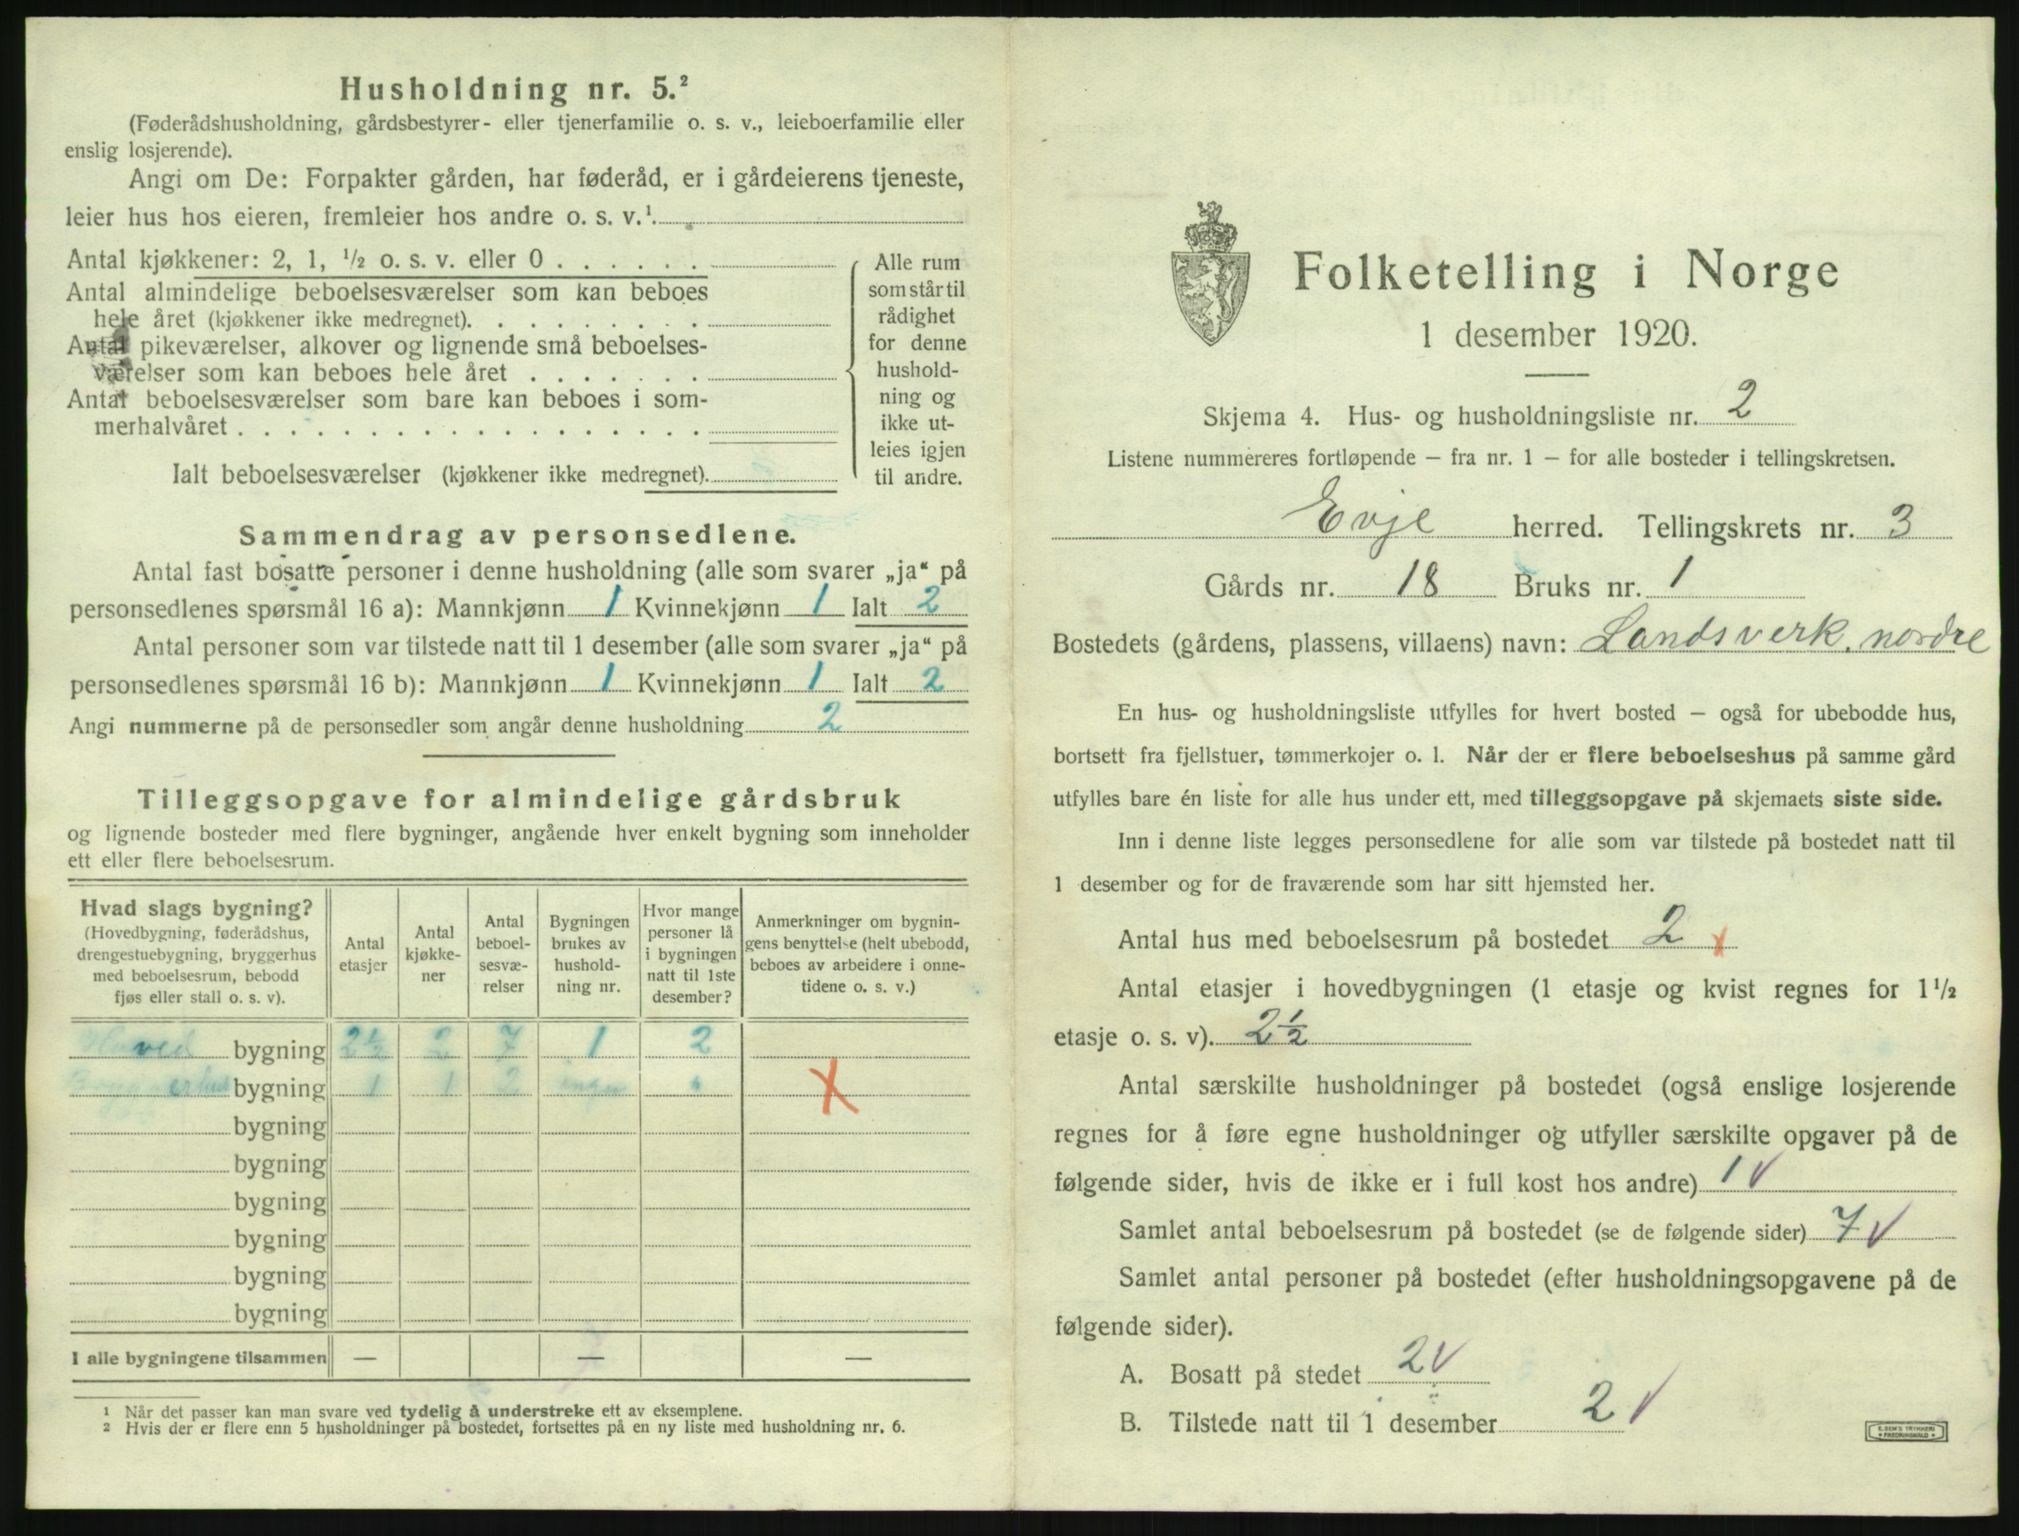 Husholdning nr. 5.²
(Føderådshusholdning, gårdsbestyrer- eller tjenerfamilie o. s. v., leieboerfamilie eller
enslig losjerende).
Angi om De: Forpakter gården, har føderåd, er i gårdeierens tjeneste,
leier hus hos eieren, fremleier hos andre o. s. v.¹
Antal kjøkkener: 2, 1, ½ o. s. v. eller 0
Antal almindelige beboelsesværelser som kan beboes
hele året (kjøkkener ikke medregnet).
Antal pikeværelser, alkover og lignende små beboelses-
værelser som kan beboes hele året
Antal beboelsesværelser som bare kan beboes i som-
merhalvåret
Ialt beboelsesværelser (kjøkkener ikke medregnet).
Alle rum
som står til
rådighet
for denne
hushold-
ning og
ikke ut-
leies igjen
til andre.
Sammendrag av personsedlene.
Antal fast bosatte personer i denne husholdning (alle som svarer „ja“ på
personsedlenes spørsmål 16 a): Mannkjønn 1 Kvinnekjønn 1 Ialt 2
Antal personer som var tilstede natt til 1 desember (alle som svarer „ja“ på
personsedlenes spørsmål 16 b): Mannkjønn 1 Kvinnekjønn 1 Ialt 2
Angi nummerne på de personsedler som angår denne husholdning 2
Tilleggsopgave for almindelige gårdsbruk
og lignende bosteder med flere bygninger, angående hver enkelt bygning som inneholder
ett eller flere beboelsesrum.
Hvad slags bygning?
(Hovedbygning, føderådshus,
drengestuebygning, bryggerhus
med beboelsesrum, bebodd
fjøs eller stall o. s. v).
Antal
etasjer
Antal
kjøkke-
ner
Antal
beboel-
sesvæ-
relser
Bygningen
brukes av
hushold-
ning nr.
Hvor mange
personer lå
i bygningen
natt til 1ste
desember?
Anmerkninger om bygnin-
gens benyttelse (helt ubebodd,
beboes av arbeidere i onne-
tidene o. s. v.)
Hoved bygning 2½ 2 7 1 2
Bryggerhus bygning 1 1 2 ingen X
bygning
bygning
bygning
bygning
bygning
bygning
I alle bygningene tilsammen — — —
¹ Når det passer kan man svare ved tydelig å understreke ett av eksemplene.
² Hvis der er flere enn 5 husholdninger på bostedet, fortsettes på en ny liste med husholdning nr. 6.
Folketelling i Norge
1 desember 1920.
Skjema 4. Hus- og husholdningsliste nr. 2
Listene nummereres fortløpende — fra nr. 1 — for alle bosteder i tellingskretsen.
Evje herred. Tellingskrets nr. 3
Gårds nr. 18 Bruks nr. 1
Bostedets (gårdens, plassens, villaens) navn: Landsverk, nordre
En hus- og husholdningsliste utfylles for hvert bosted — også for ubebodde hus,
bortsett fra fjellstuer, tømmerkojer o. l. Når der er flere beboelseshus på samme gård
utfylles bare én liste for alle hus under ett, med tilleggsopgave på skjemaets siste side.
Inn i denne liste legges personsedlene for alle som var tilstede på bostedet natt til
1 desember og for de fraværende som har sitt hjemsted her.
Antal hus med beboelsesrum på bostedet 2 x
Antal etasjer i hovedbygningen (1 etasje og kvist regnes for 1½
etasje o. s. v). 2½
Antal særskilte husholdninger på bostedet (også enslige losjerende
regnes for å føre egne husholdninger og utfyller særskilte opgaver på de
følgende sider, hvis de ikke er i full kost hos andre) 1 √
Samlet antal beboelsesrum på bostedet (se de følgende sider) 7 √
Samlet antal personer på bostedet (efter husholdningsopgavene på de
følgende sider).
A. Bosatt på stedet 2 √
B. Tilstede natt til 1 desember 2 √